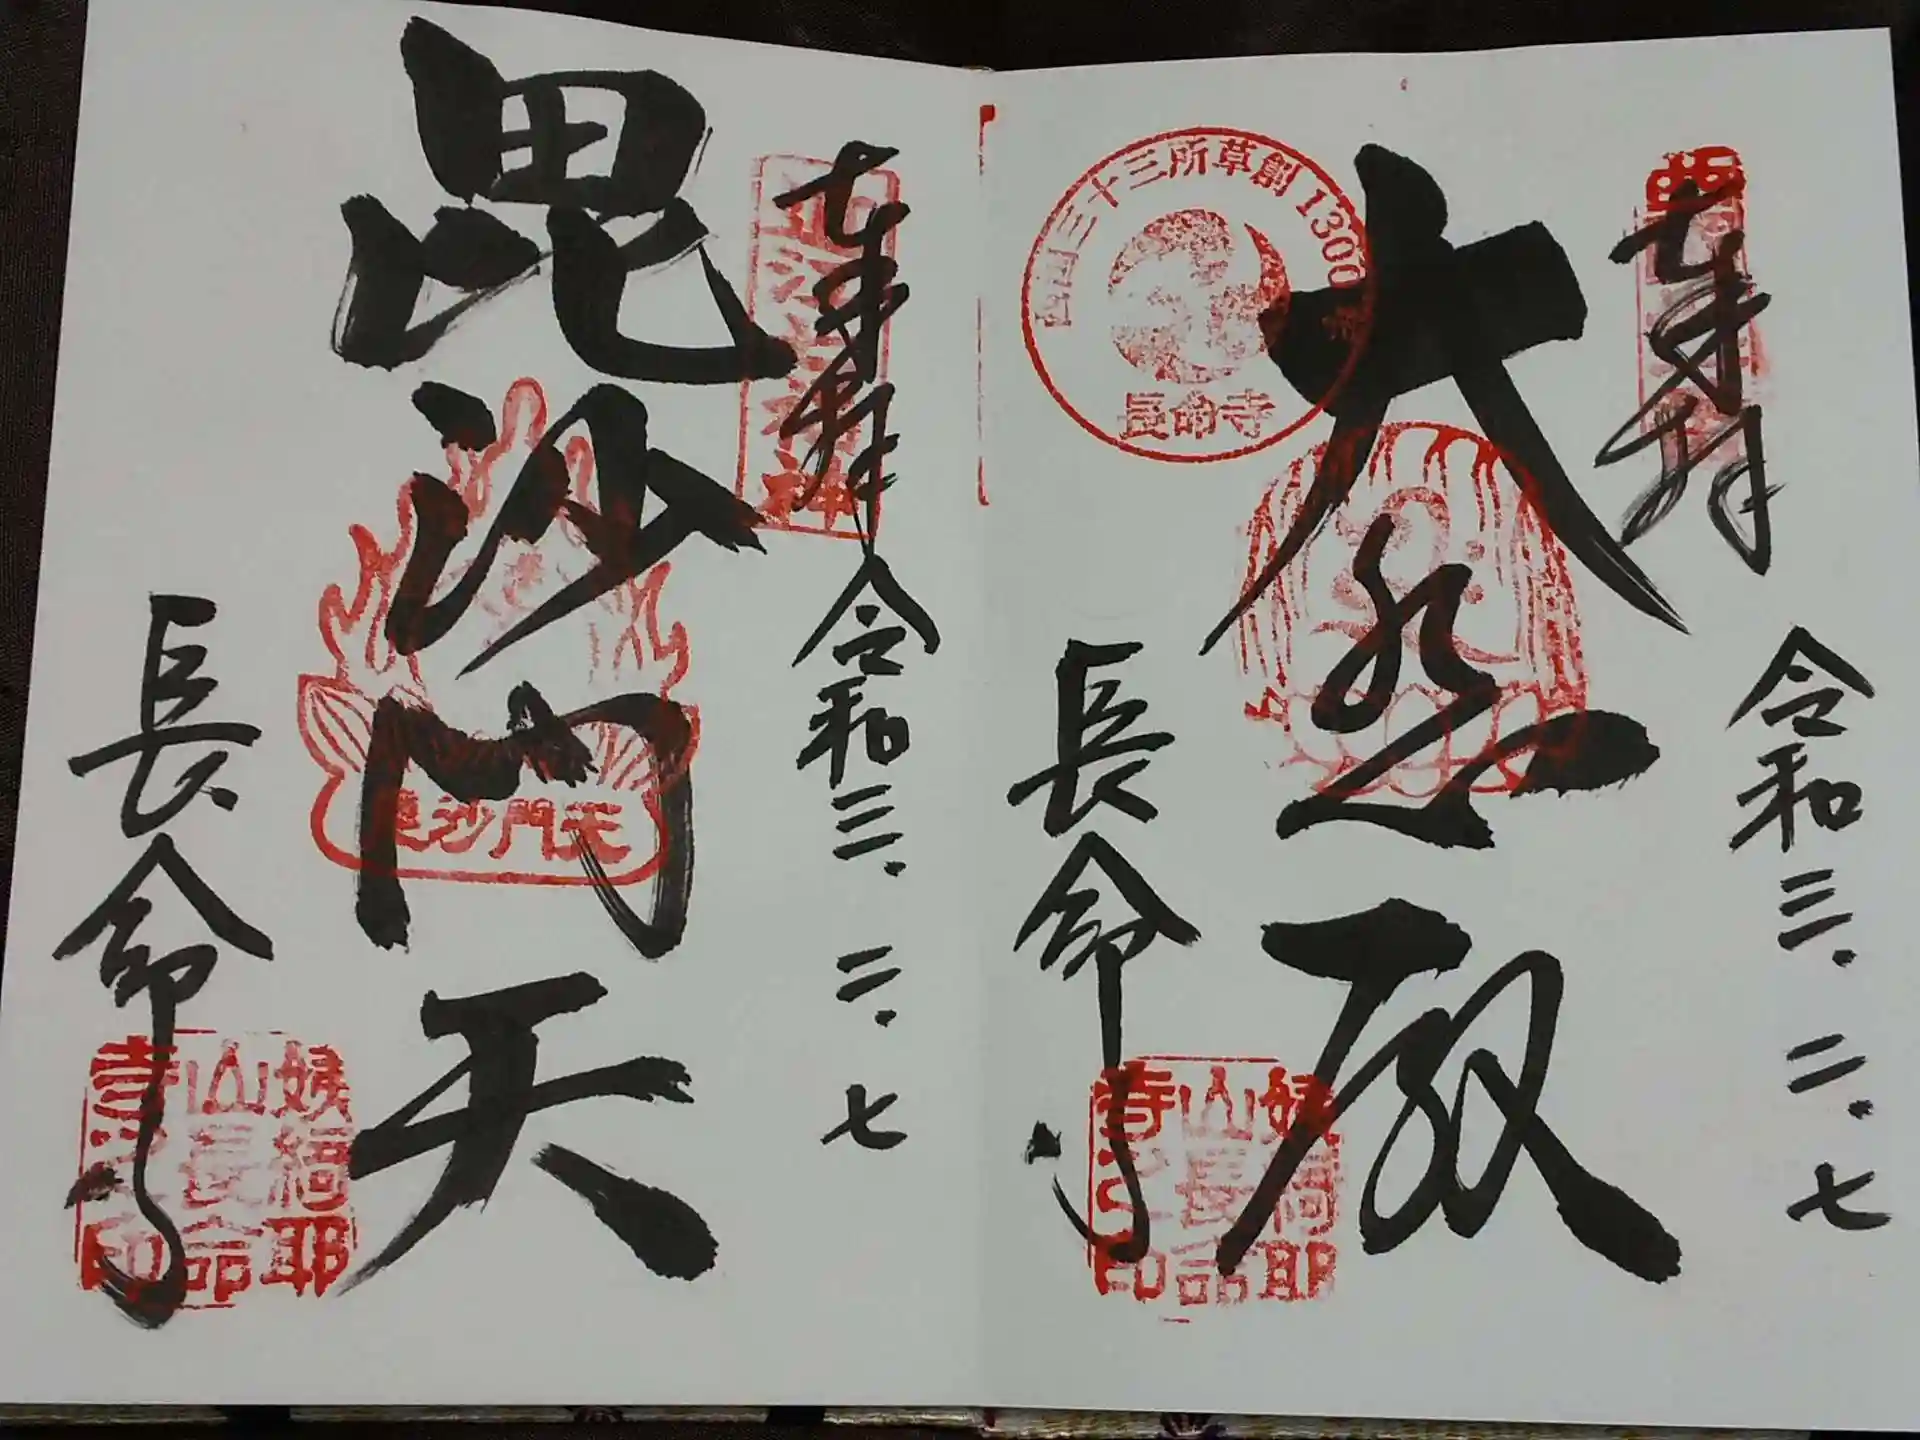 奉拝
令和三.二.七
大悲殿
西国三十三所草創1300
長命寺
長命寺
姨綺耶
山長命
寺之印
奉拝
令和三.二.七
毘沙門天
毘沙門天
長命寺
姨綺耶
山長命
寺之印